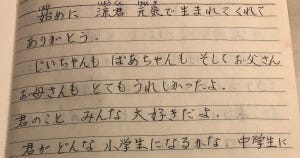 始めに 涼君 元気で生まれてくれて
ありがとう。
じいちゃんも ばあちゃんも そしてお父さん
お母さんも とてもうれしかったよ。
君のこと みんな 大好きだよ。
君が どんな 小学生に なるかな 中学生に